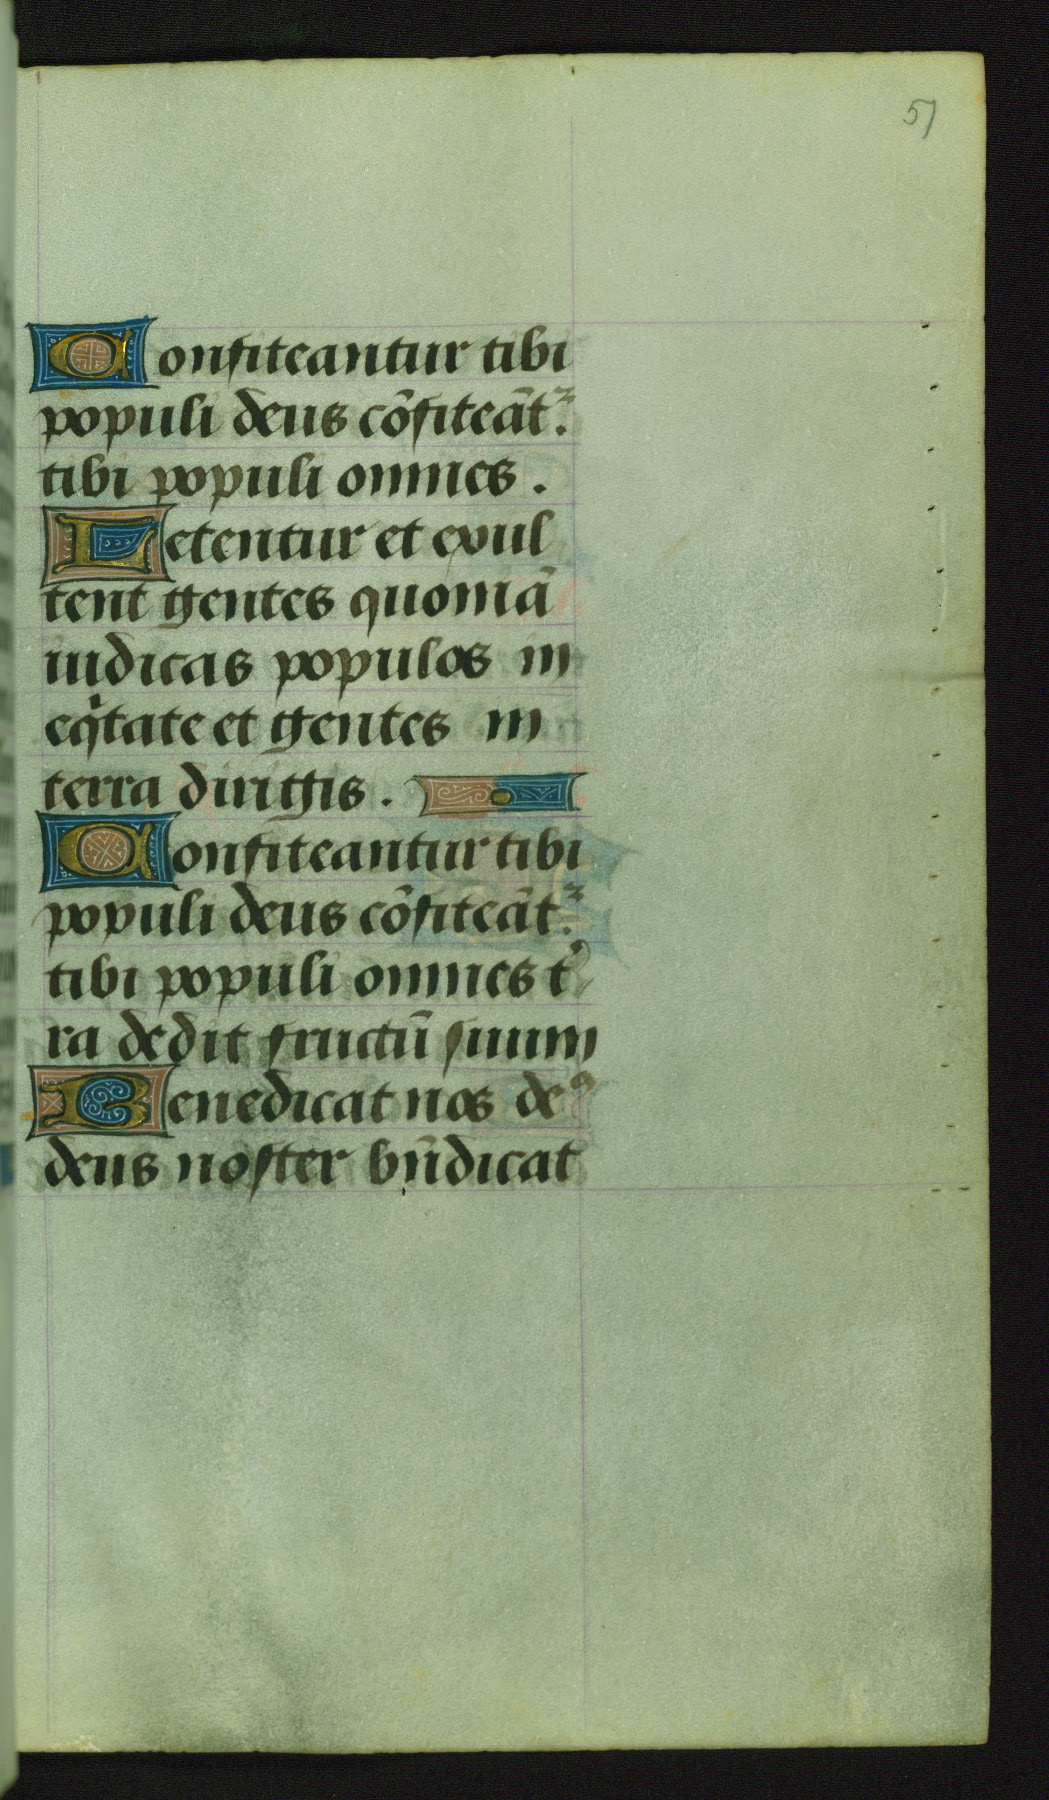 51
Confiteantur tibi
populi deus cōfiteāt᷑.
tibi populi omnes.
Letentur et exul
tent gentes quoniā
iudicas populos in
eqͥtate et gentes in
terra dirigis.
Confiteantur tibi
populi deus cōfiteāt᷑.
tibi populi omnes t̓
ra dedit fructū ſuum
Benedicat nos deꝰ
deus noſter bn̄dicat